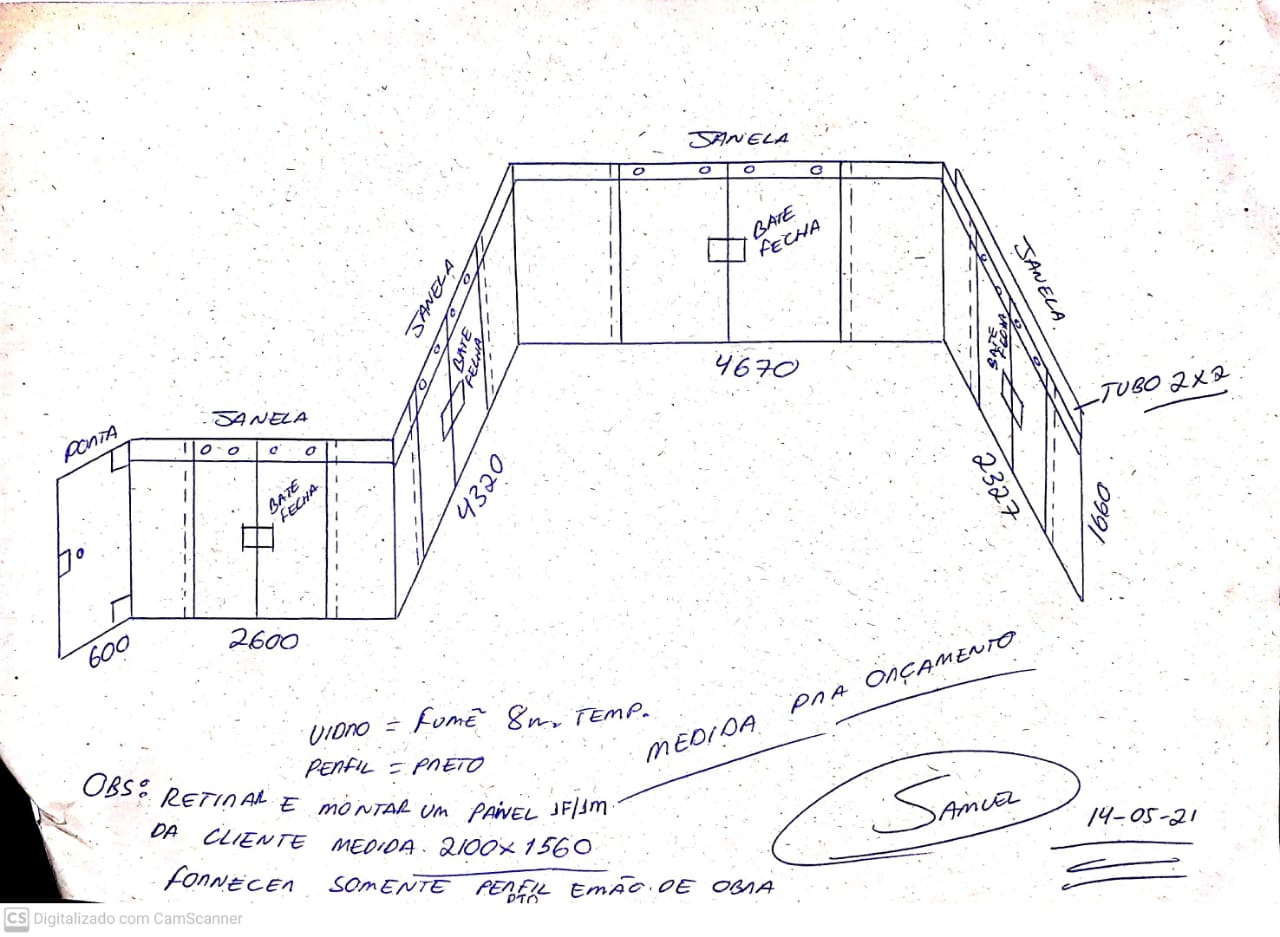 JANELA
BATE
FECHA
4670
JANELA
BATE
FECHA
4320
JANELA
BATE
FECHA
2327
TUBO 2X2
1660
PORTA
JANELA
BATE
FECHA
600
2600
VIDRO = FUMÊ 8m. TEMP.
PERFIL = PRETO
MEDIDA PRA ORÇAMENTO
OBS: RETIRAR E MONTAR UM PAINEL 1F/1M
DA CLIENTE MEDIDA. 2100X1560
FORNECER SOMENTE PERFIL E MÃO.DE OBRA
PTO
SAMUEL
14-05-21
CS Digitalizado com CamScanner